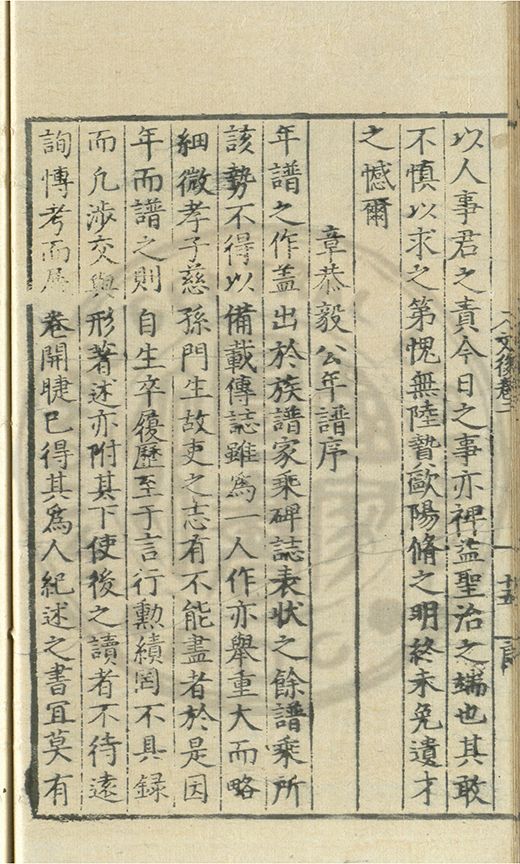 文後卷二
十五
以人事君之責今日之事亦裨益聖治之端也其敢
不慎以求之第愧無陸贄歐陽脩之明終未免遺才
之憾爾
章恭毅公年譜序
年譜之作蓋出於族譜家乘碑誌表狀之餘譜乘所
該勢不得以備載傳誌雖為一人作亦舉重大而略
細微孝子慈孫門生故吏之志有不能盡者於是因
年而譜之則自生卒履歷至于言行勳績罔不具録
而凡涉交與形著述亦附其下使後之讀者不待遠
詢愽考而卷開睫已得其為人紀述之書冝莫有